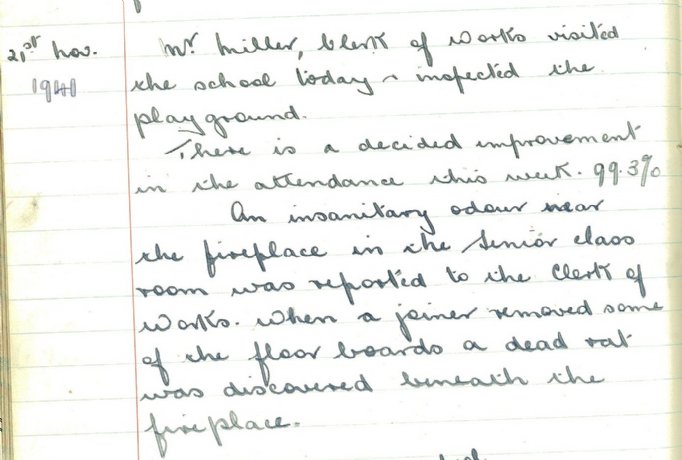 21st Nov. Mr Miller, Clerk of Works visited
1941 the school today & inspected the
playground.
There is a decided improvement
in the attendance this week. 99.3%
An insanitary odour near
the fireplace in the Senior class
room was reported to the Clerk of
Works. When a joiner removed some
of the floor boards a dead rat
was discovered beneath the
fireplace.